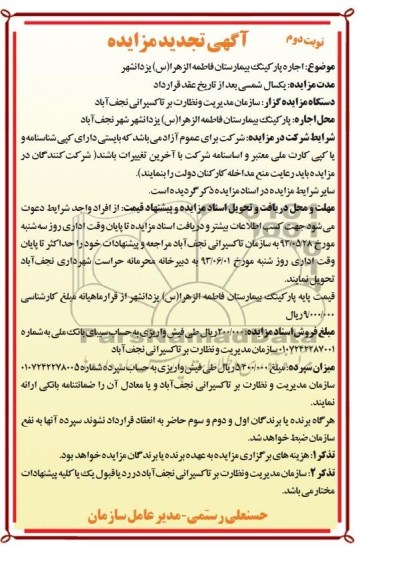 نوبت دوم
آگهی تجدید مزایده
موضوع: اجاره پارکینگ بیمارستان فاطمه الزهرا(س) یزدانشهر
مدت مزایده: یکسال شمسی بعد از تاریخ عقد قرارداد
دستگاه مزایده گزار: سازمان مدیریت و نظارت بر تاکسیرانی نجف آباد
محل اجاره: پارکینگ بیمارستان فاطمه الزهرا(س) یزدانشهر شهر نجف آباد
شرایط شرکت در مزایده: شرکت برای عموم آزاد می باشد که بایستی دارای کپی شناسنامه و
یا کپی کارت ملی معتبر و اساسنامه شرکت با آخرین تغییرات باشند( شرکت کنندگان در
مزایده باید رعایت منع مداخله کارکنان دولت را بنمایند).
سایر شرایط مزایده در اسناد مزایده ذکر گردیده است.
مهلت و محل دریافت و تحویل اسناد مزایده و پیشنهاد قیمت: از افراد واجد شرایط دعوت
می شود جهت کسب اطلاعات بیشتر و دریافت اسناد مزایده تا پایان وقت اداری روز سه شنبه
مورخ ۹۳/۰۵/۲۸ به سازمان تاکسیرانی نجف آباد مراجعه و پیشنهادات خود را حداکثر تا پایان
وقت اداری روز شنبه مورخ ۹۳/۰۶/۰۱ به دبیرخانه محرمانه حراست شهرداری نجف آباد
تحویل نمایند.
قیمت پایه پارکینگ بیمارستان فاطمه الزهرا(س) یزدانشهر از قرار ماهیانه مبلغ کارشناسی
۹/۰۰۰/۰۰۰ ریال
مبلغ فروش اسناد مزایده: ۲۰۰/۰۰۰ ریال طی فیش واریزی به حساب سیبای بانک ملی به شماره
۰۱۰۷۲۴۲۲۸۷۰۰۱ سازمان مدیریت و نظارت بر تاکسیرانی نجف آباد
میزان سپرده: مبلغ ۵/۴۰۰/۰۰۰ ریال طی فیش واریزی به حساب سپرده شماره ۰۱۰۷۲۴۲۲۷۸۰۰۵
سازمان مدیریت و نظارت بر تاکسیرانی نجف آباد و یا معادل آن را ضمانتنامه بانکی ارائه
نمایند.
هرگاه برنده یا برندگان اول و دوم و سوم حاضر به انعقاد قرارداد نشوند سپرده آنها به نفع
سازمان ضبط خواهد شد.
تذکر ۱: هزینه های برگزاری مزایده به عهده برنده یا برندگان مزایده خواهد بود.
تذکر ۲: سازمان مدیریت و نظارت بر تاکسیرانی نجف آباد در رد یا قبول یک یا کلیه پیشنهادات
مختار می باشد.
حسنعلی رستمی-مدیر عامل سازمان